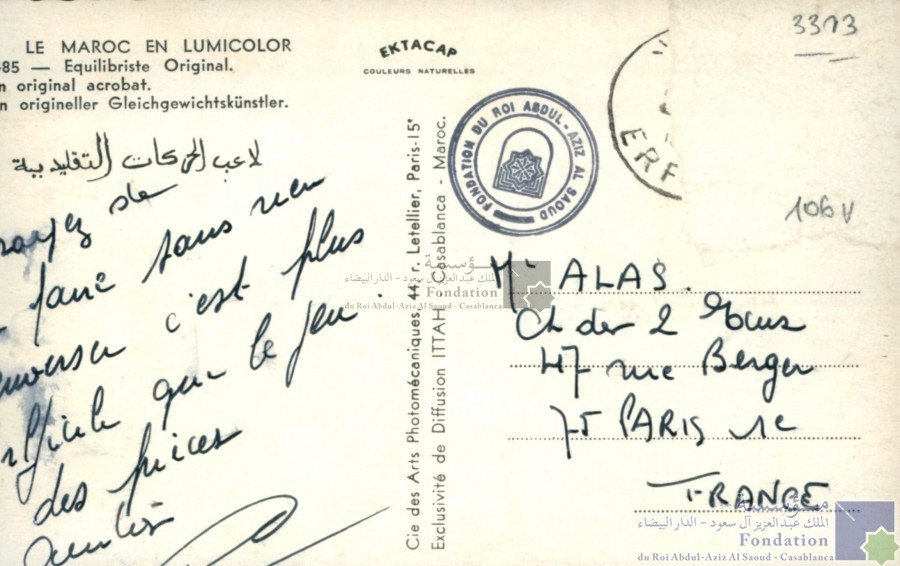 3313
LE MAROC EN LUMICOLOR
485 — Equilibriste Original.
n original acrobat.
n origineller Gleichgewichtskünstler.
لاعب الحركات التقليدية
EKTACAP
COULEURS NATURELLES
FONDATION DU ROI ABDUL-AZIZ AL SAOUD
ERF
106 V
de
faire tans rien
c'est plus
que le jeu.
des pièces
Cie des Arts Photomécaniques, 44, r. Letellier, Paris-15e
Exclusivité de Diffusion ITTAH, Casablanca - Maroc.
Mr ALAS.
47 rue Berger
75 PARIS 1e
FRANCE
مؤسسة
الملك عبد العزيز آل سعود - الدار البيضاء
Fondation
du Roi Abdul-Aziz Al Saoud - Casablanca
مؤسسة
الملك عبد العزيز آل سعود - الدار البيضاء
Fondation
du Roi Abdul-Aziz Al Saoud - Casablanca